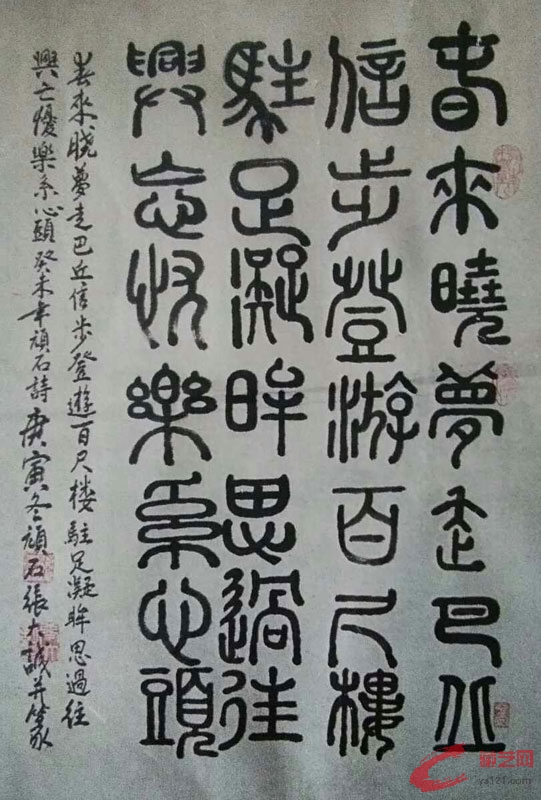 春來曉夢走巴丘
信步登游百尺樓
駐足凝眸思過往
興亡忧樂系心頭
春來曉夢走巴丘信步登遊百尺楼駐足凝眸思過往
興亡憂樂系心頭癸未年頑石詩庚寅冬頑石張大誠并篆
藝艺网
ys121.com